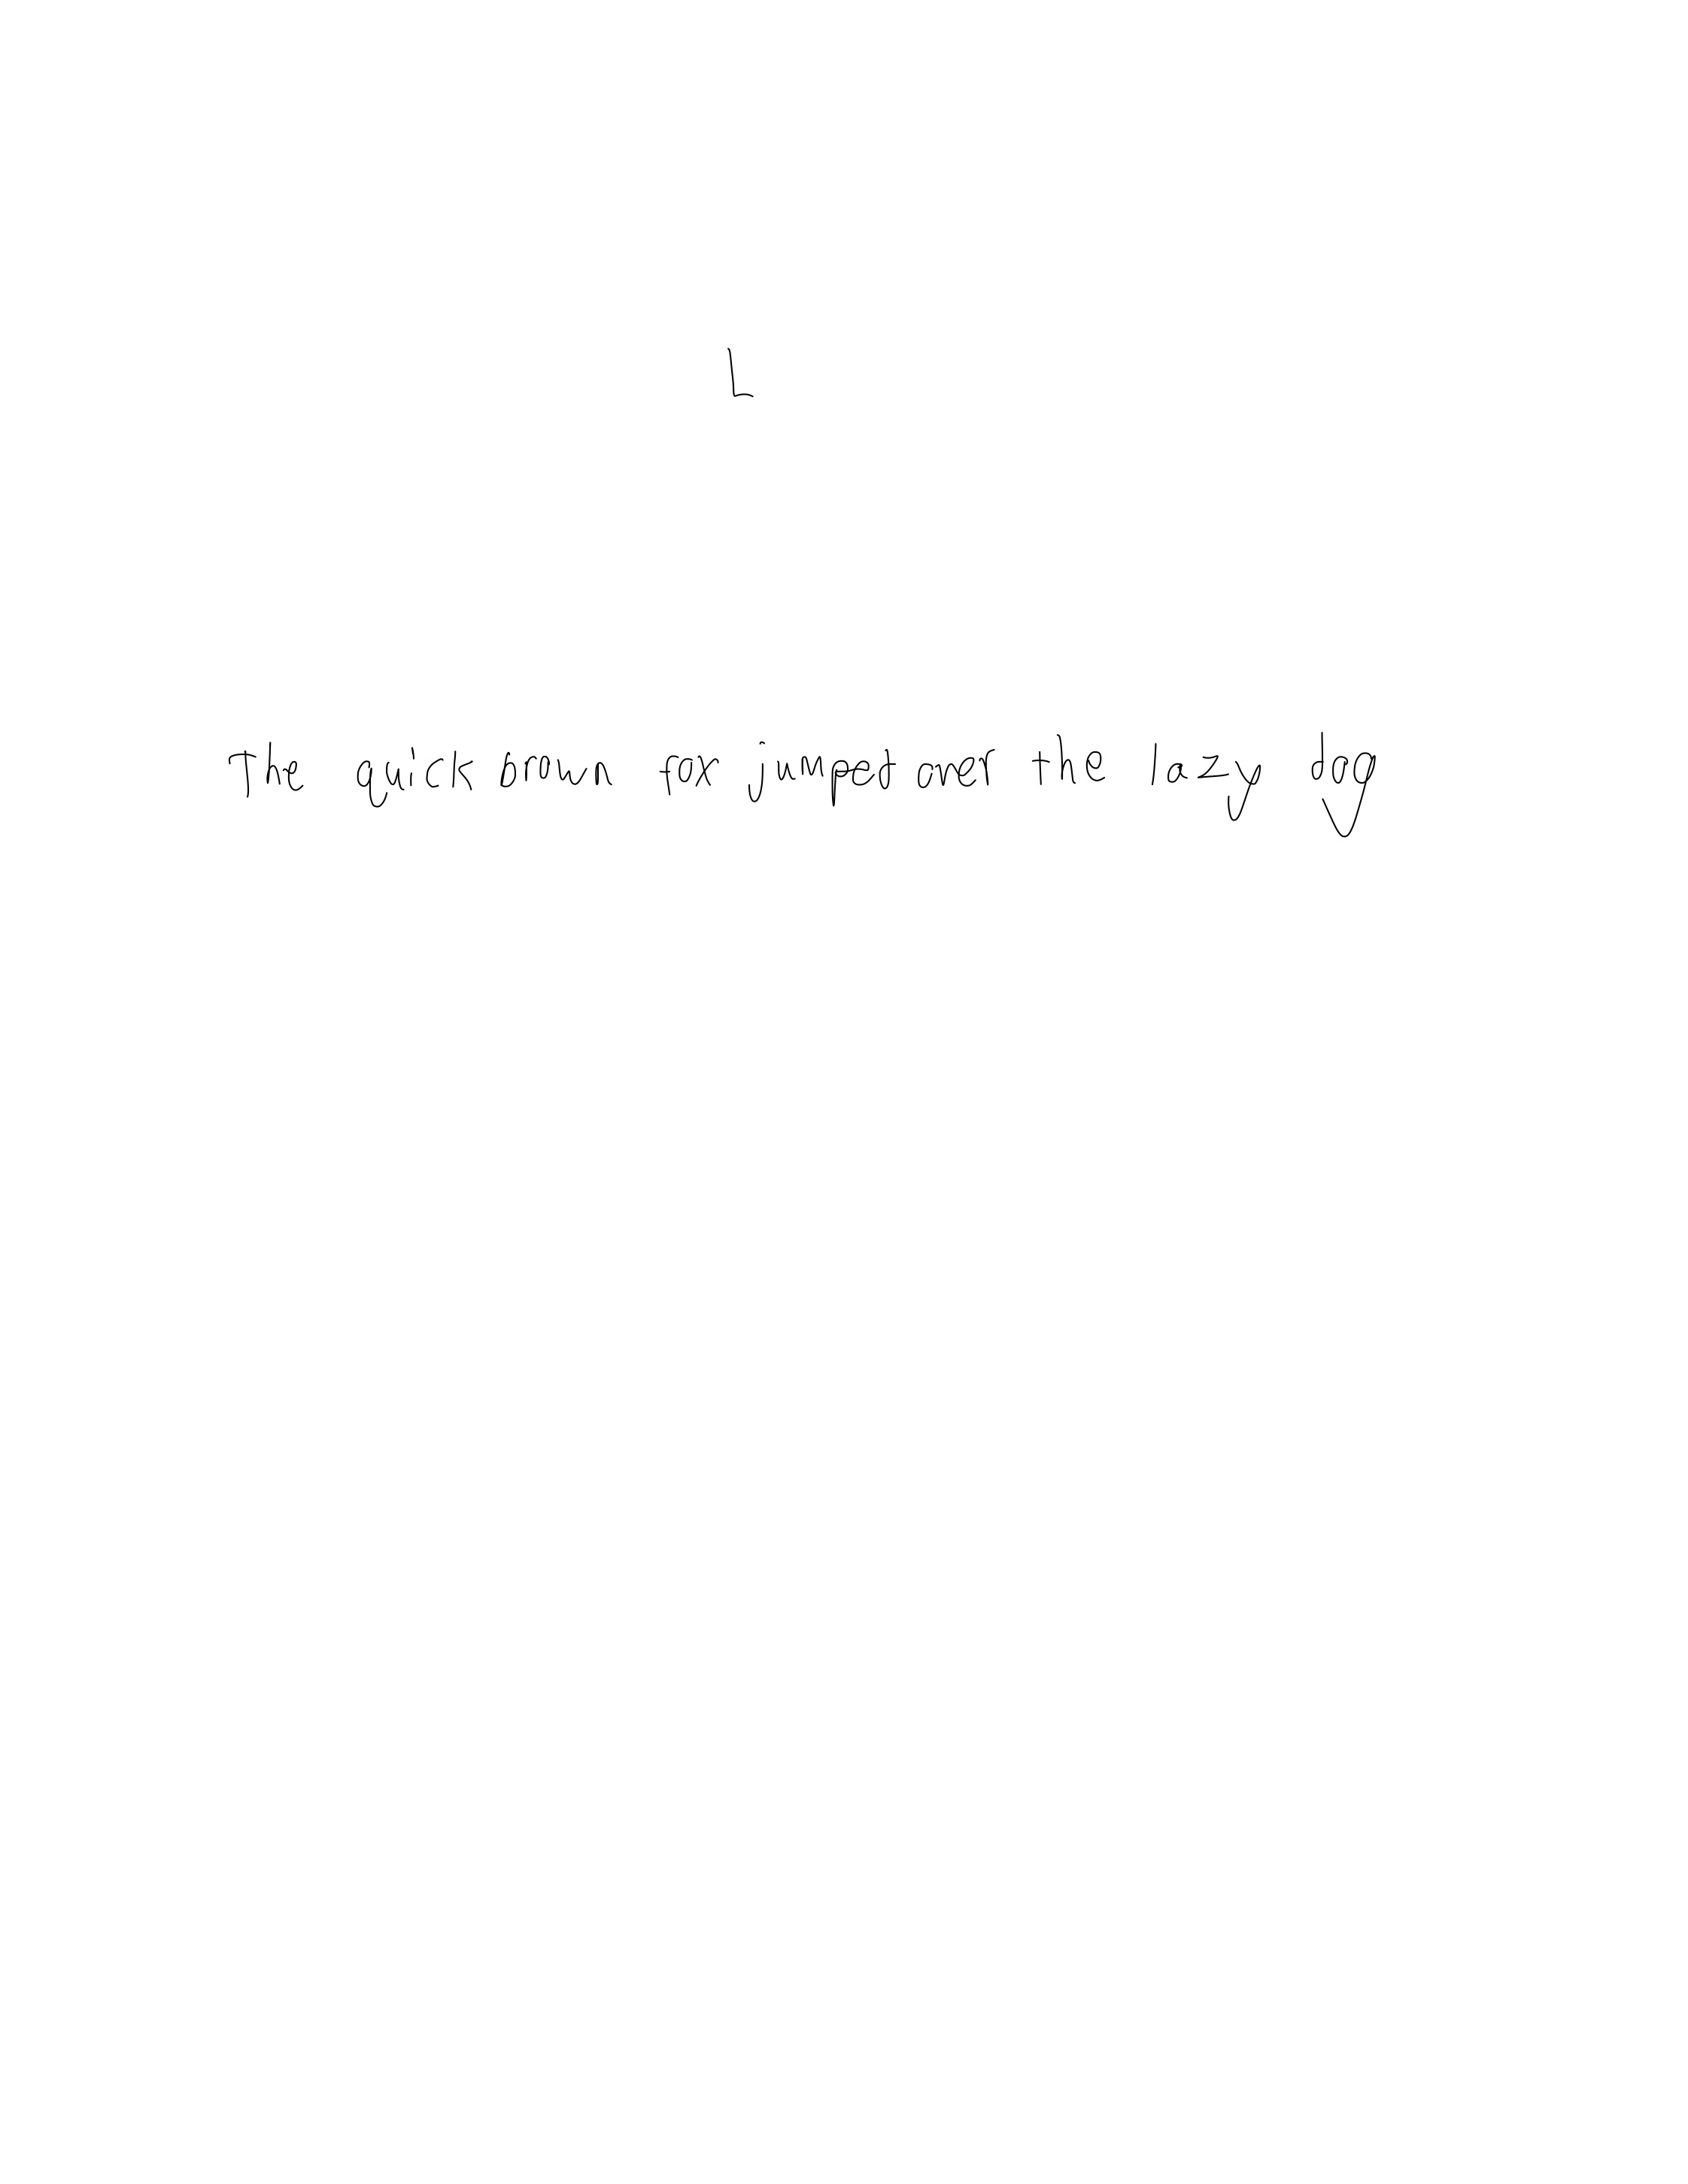 L
The quick brown fox jumped over the lazy dog